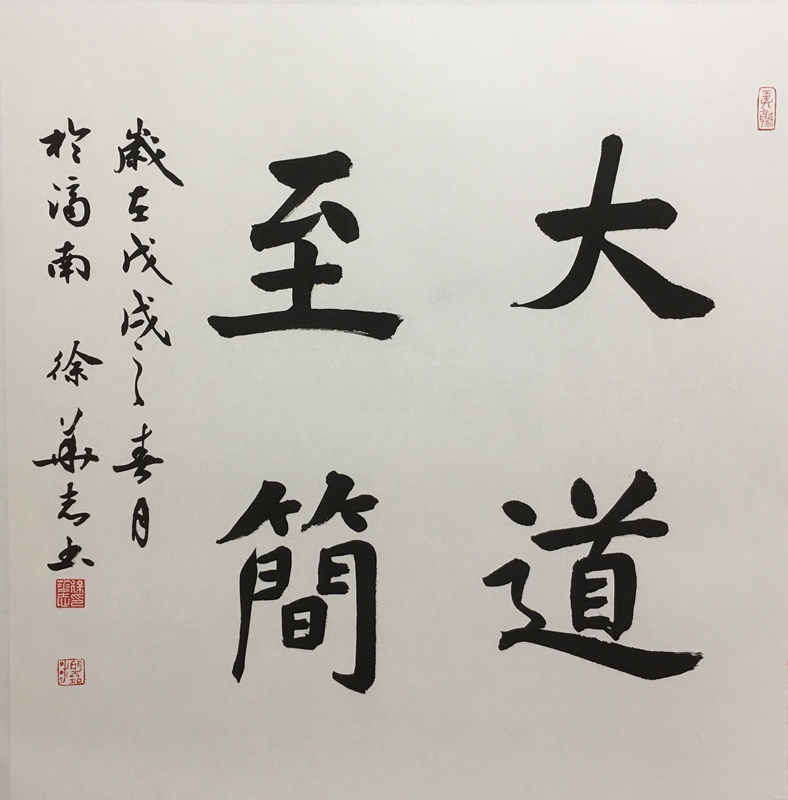 大道
至簡
歲在戊戌之春月
於濟南 徐華志書